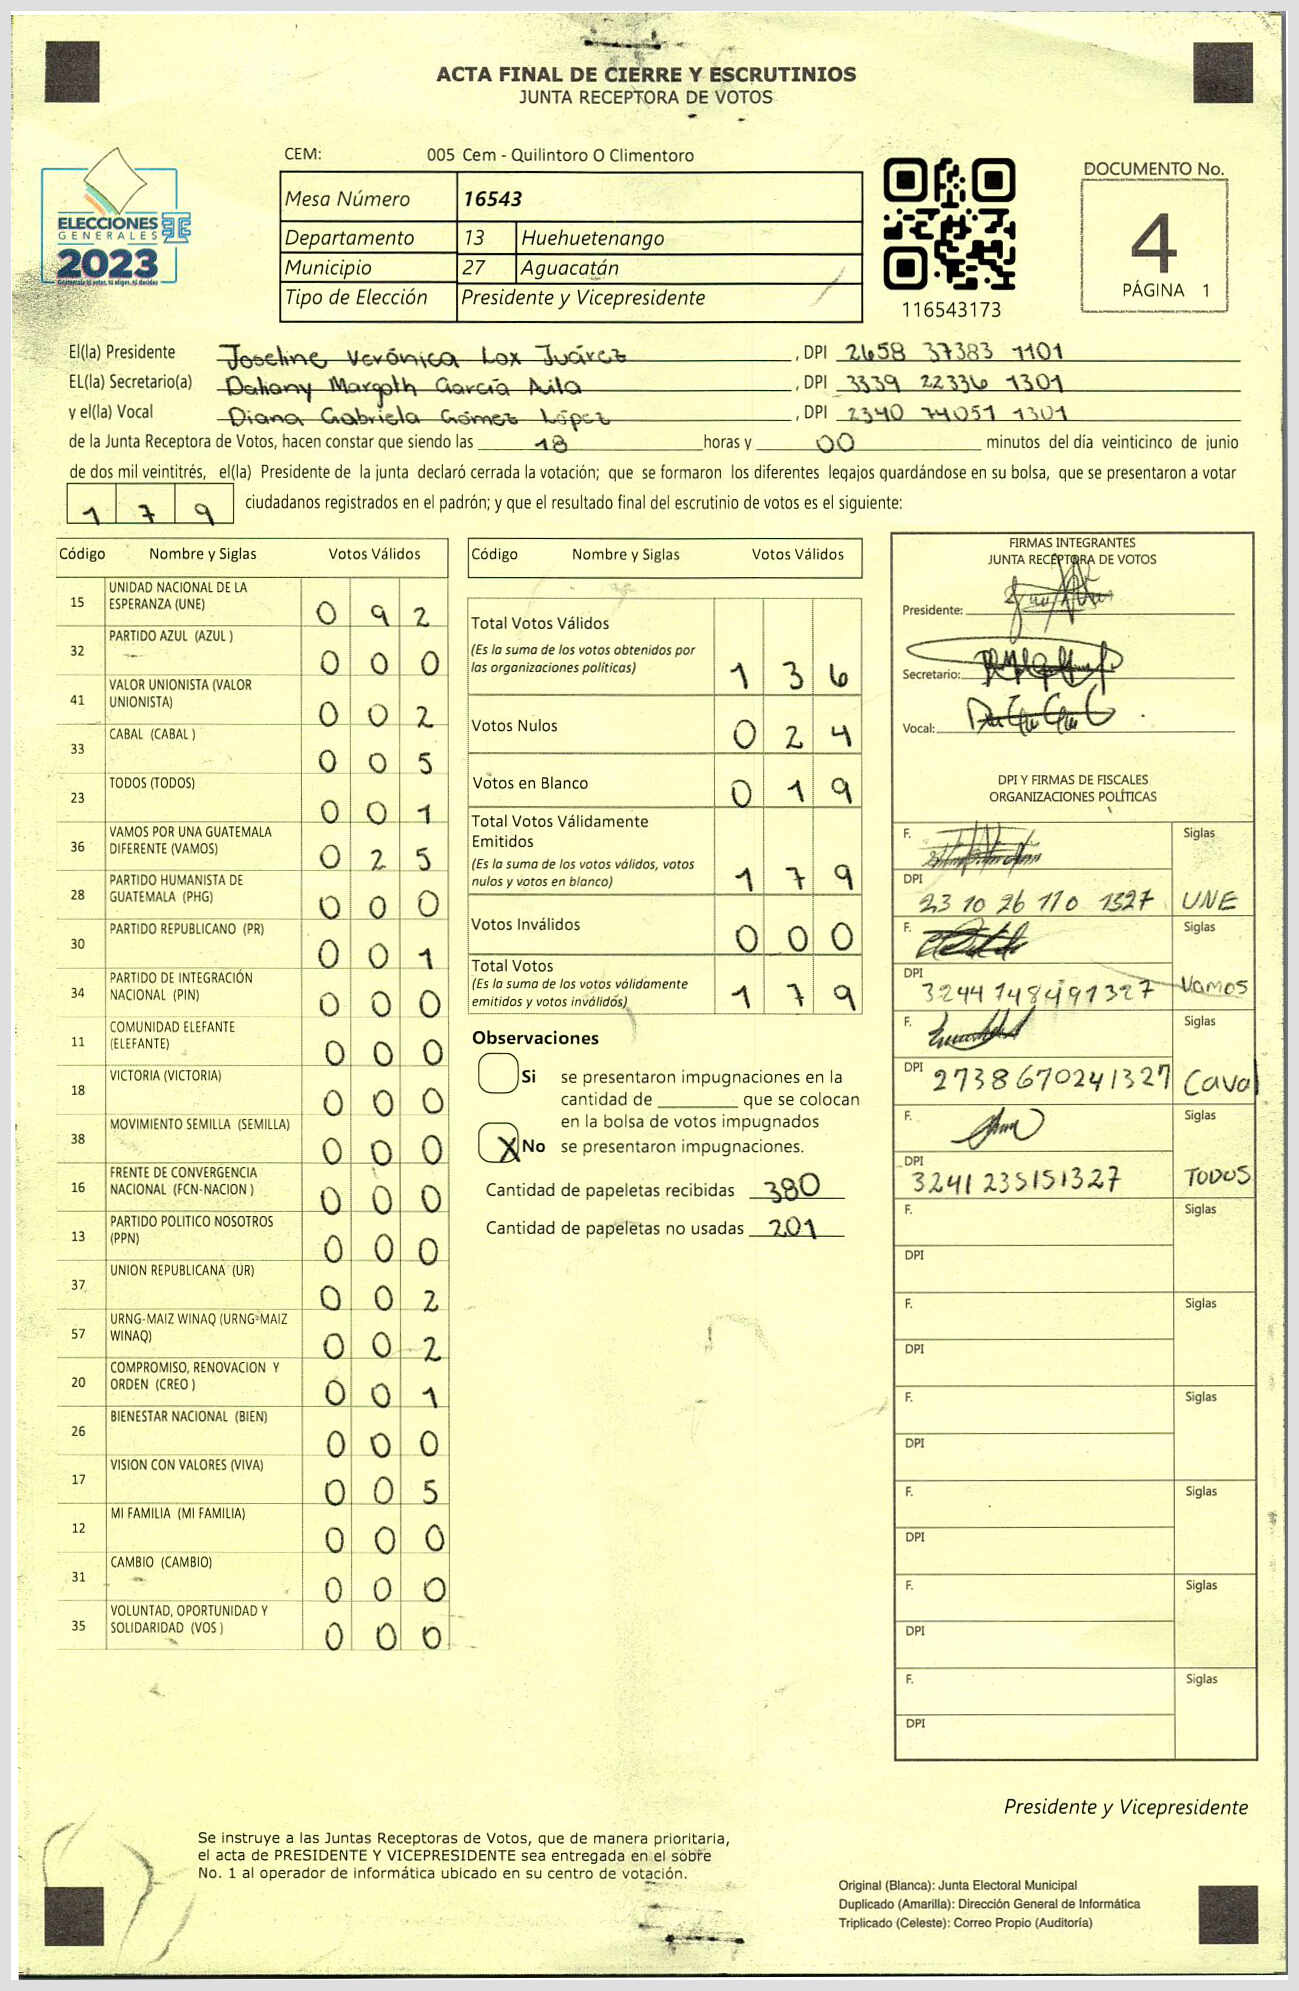 ACTA FINAL DE CIERRE Y ESCRUTINIOS
JUNTA RECEPTORA DE VOTOS
CEM: 005 Cem - Quilintoro O Climentoro
ELECCIONES
GENERALES
2023
Guatemala tú votas, tú eliges, tú decides
Mesa Número 16543
Departamento 13 Huehuetenango
Municipio 27 Aguacatán
Tipo de Elección Presidente y Vicepresidente
116543173
DOCUMENTO No.
4
PÁGINA 1
El(la) Presidente Joseline Verónica Lox Juárez , DPI 2658 37383 1101
EL(la) Secretario(a) Dahany Margoth García Avila , DPI 3339 22336 1301
y el(la) Vocal Diana Gabriela Gómez López , DPI 2340 74051 1301
de la Junta Receptora de Votos, hacen constar que siendo las 18 horas y 00 minutos del día veinticinco de junio
de dos mil veintitrés, el(la) Presidente de la junta declaró cerrada la votación; que se formaron los diferentes legajos quardándose en su bolsa, que se presentaron a votar
1 7 9 ciudadanos registrados en el padrón; y que el resultado final del escrutinio de votos es el siguiente:
Código Nombre y Siglas Votos Válidos
15 UNIDAD NACIONAL DE LA
ESPERANZA (UNE) 0 9 2
32 PARTIDO AZUL (AZUL ) 0 0 0
41 VALOR UNIONISTA (VALOR
UNIONISTA) 0 0 2
33 CABAL (CABAL ) 0 0 5
23 TODOS (TODOS) 0 0 1
36 VAMOS POR UNA GUATEMALA
DIFERENTE (VAMOS) 0 2 5
28 PARTIDO HUMANISTA DE
GUATEMALA (PHG) 0 0 0
30 PARTIDO REPUBLICANO (PR) 0 0 1
34 PARTIDO DE INTEGRACIÓN
NACIONAL (PIN) 0 0 0
11 COMUNIDAD ELEFANTE
(ELEFANTE) 0 0 0
18 VICTORIA (VICTORIA) 0 0 0
38 MOVIMIENTO SEMILLA (SEMILLA) 0 0 0
16 FRENTE DE CONVERGENCIA
NACIONAL (FCN-NACION ) 0 0 0
13 PARTIDO POLITICO NOSOTROS
(PPN) 0 0 0
37 UNION REPUBLICANA (UR) 0 0 2
57 URNG-MAIZ WINAQ (URNG-MAIZ
WINAQ) 0 0 2
20 COMPROMISO, RENOVACION Y
ORDEN (CREO ) 0 0 1
26 BIENESTAR NACIONAL (BIEN) 0 0 0
17 VISION CON VALORES (VIVA) 0 0 5
12 MI FAMILIA (MI FAMILIA) 0 0 0
31 CAMBIO (CAMBIO) 0 0 0
35 VOLUNTAD, OPORTUNIDAD Y
SOLIDARIDAD (VOS ) 0 0 0
Código Nombre y Siglas Votos Válidos
Total Votos Válidos
(Es la suma de los votos obtenidos por
las organizaciones políticas) 1 3 6
Votos Nulos 0 2 4
Votos en Blanco 0 1 9
Total Votos Válidamente
Emitidos
(Es la suma de los votos válidos, votos
nulos y votos en blanco) 1 7 9
Votos Inválidos 0 0 0
Total Votos
(Es la suma de los votos válidamente
emitidos y votos inválidos) 1 7 9
Observaciones
Si se presentaron impugnaciones en la
cantidad de ________ que se colocan
en la bolsa de votos impugnados
X No se presentaron impugnaciones.
Cantidad de papeletas recibidas 380
Cantidad de papeletas no usadas 201
FIRMAS INTEGRANTES
JUNTA RECEPTORA DE VOTOS
Presidente:
Secretario:
Vocal:
DPI Y FIRMAS DE FISCALES
ORGANIZACIONES POLÍTICAS
F. Siglas
DPI
23 10 26 110 1327 UNE
F. Siglas
DPI
3244 148491327 Vamos
F. Siglas
DPI 2738670241327 Caval
F. Siglas
DPI
3241 235151327 TODOS
F. Siglas
DPI
F. Siglas
DPI
F. Siglas
DPI
F. Siglas
DPI
F. Siglas
DPI
F. Siglas
DPI
Presidente y Vicepresidente
Se instruye a las Juntas Receptoras de Votos, que de manera prioritaria,
el acta de PRESIDENTE Y VICEPRESIDENTE sea entregada en el sobre
No. 1 al operador de informática ubicado en su centro de votación.
Original (Blanca): Junta Electoral Municipal
Duplicado (Amarilla): Dirección General de Informática
Triplicado (Celeste): Correo Propio (Auditoría)